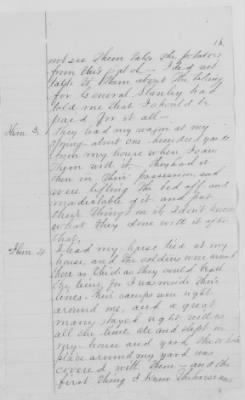 16.
not see them take the potatoes
from this patch — I did not
talk to them about the taking
for General Stanley had
told me that I should be
paid for it all —
Item 3, They had my wagon at my
about one hundred yards
from my house when I saw
them with it. They had it
then in their possession and
were lifting the bed off and
and put
their things in it I don't know
what they done with it after
that,
Item 4 I had my horse tied at my
house and the soldiers were around
there as thick as they could
be being for I was inside their
lines — their camps were right
around me, and a great
many stayed right with us
all the time, ate and slept in
my house and yard the whole
place around my yard was
covered with them — and the
first thing I knew there was